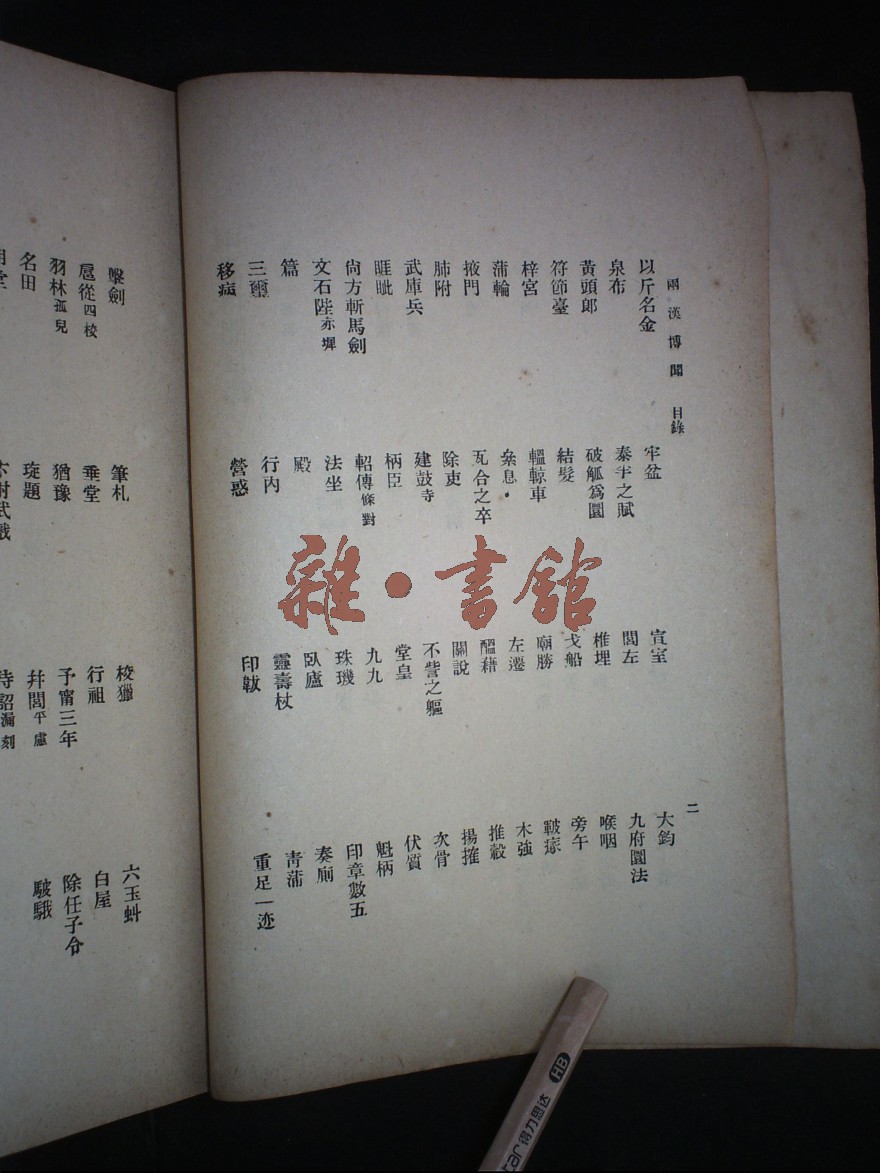 兩漢博聞 目錄 二
以斤名金 牢盆 宣室 大鈞
泉布 泰半之賦 閭左 九府圜法
黃頭郎 破觚爲圜 椎埋 喉咽
符節臺 結髮 戈船 旁午
梓宮 轀輬車 廟勝 皸瘃
蒲輪 絫息 左遷 木強
掖門 瓦合之卒 醞藉 推轂
肺附 除吏 關說 揚搉
武庫兵 建鼓寺 不訾之軀 次骨
睚眦 柄臣 堂皇 伏質
尙方斬馬劍 軺傳條對 九九 魁柄
文石陛赤墀 法坐 珠璣 印章數五
篇 殿 臥廬 奏廁
三璽 行內 靈壽杖 靑蒲
移病 營惑 印韍 重足一迹
擊劍 筆札 梭獵 六玉虯
扈從四校 垂堂 行祖 白屋
羽林孤兒 猶豫 予甯三年 除任子令
名田 琁題 幷閭平慮 駊騀
待詔漏刻
雜·書館
得力思达
HB